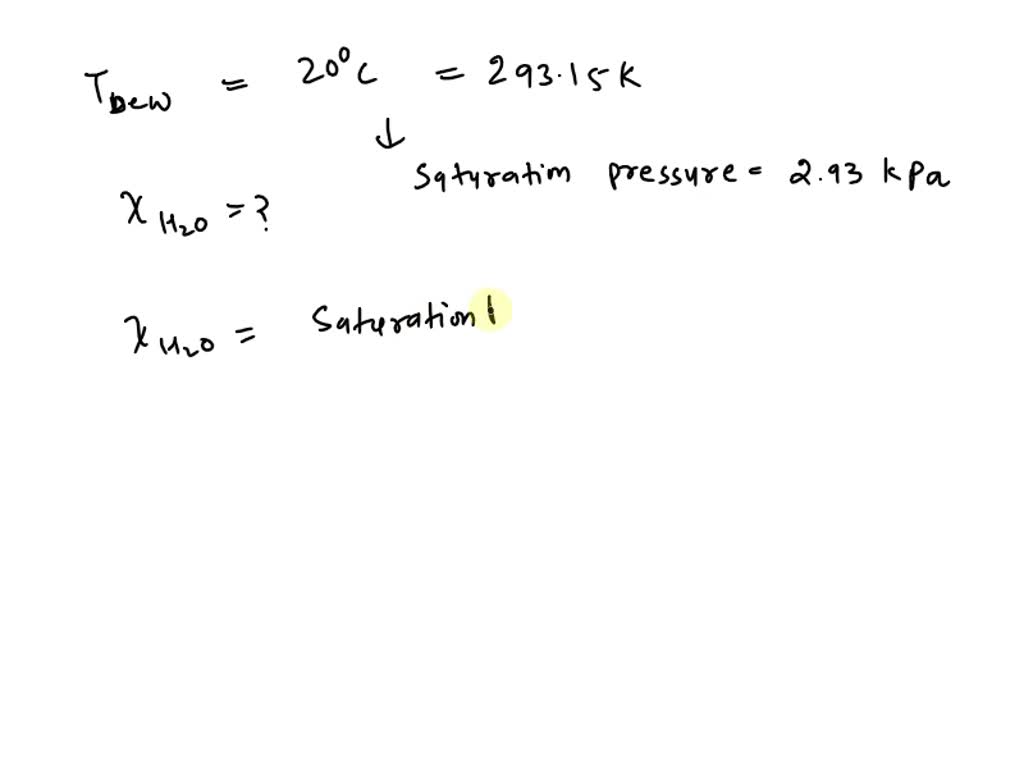 T Dew = 20°C = 293.15K
↓
Saturatim pressure = 2.93 kPa
X H2O = ?
X H2O = Saturation